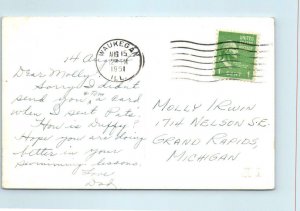 WAUKEGAN
AUG 15
1951
ILL.
UNITED STATES
14 August
Dear Molly,
Sorry I didn't
send you a card
when I sent Pat's.
How is Duffy?
Hope you are doing
better in your
swimming lessons.
Love
Dad
MOLLY IRWIN
1714 NELSON S.E.
GRAND RAPIDS,
MICHIGAN